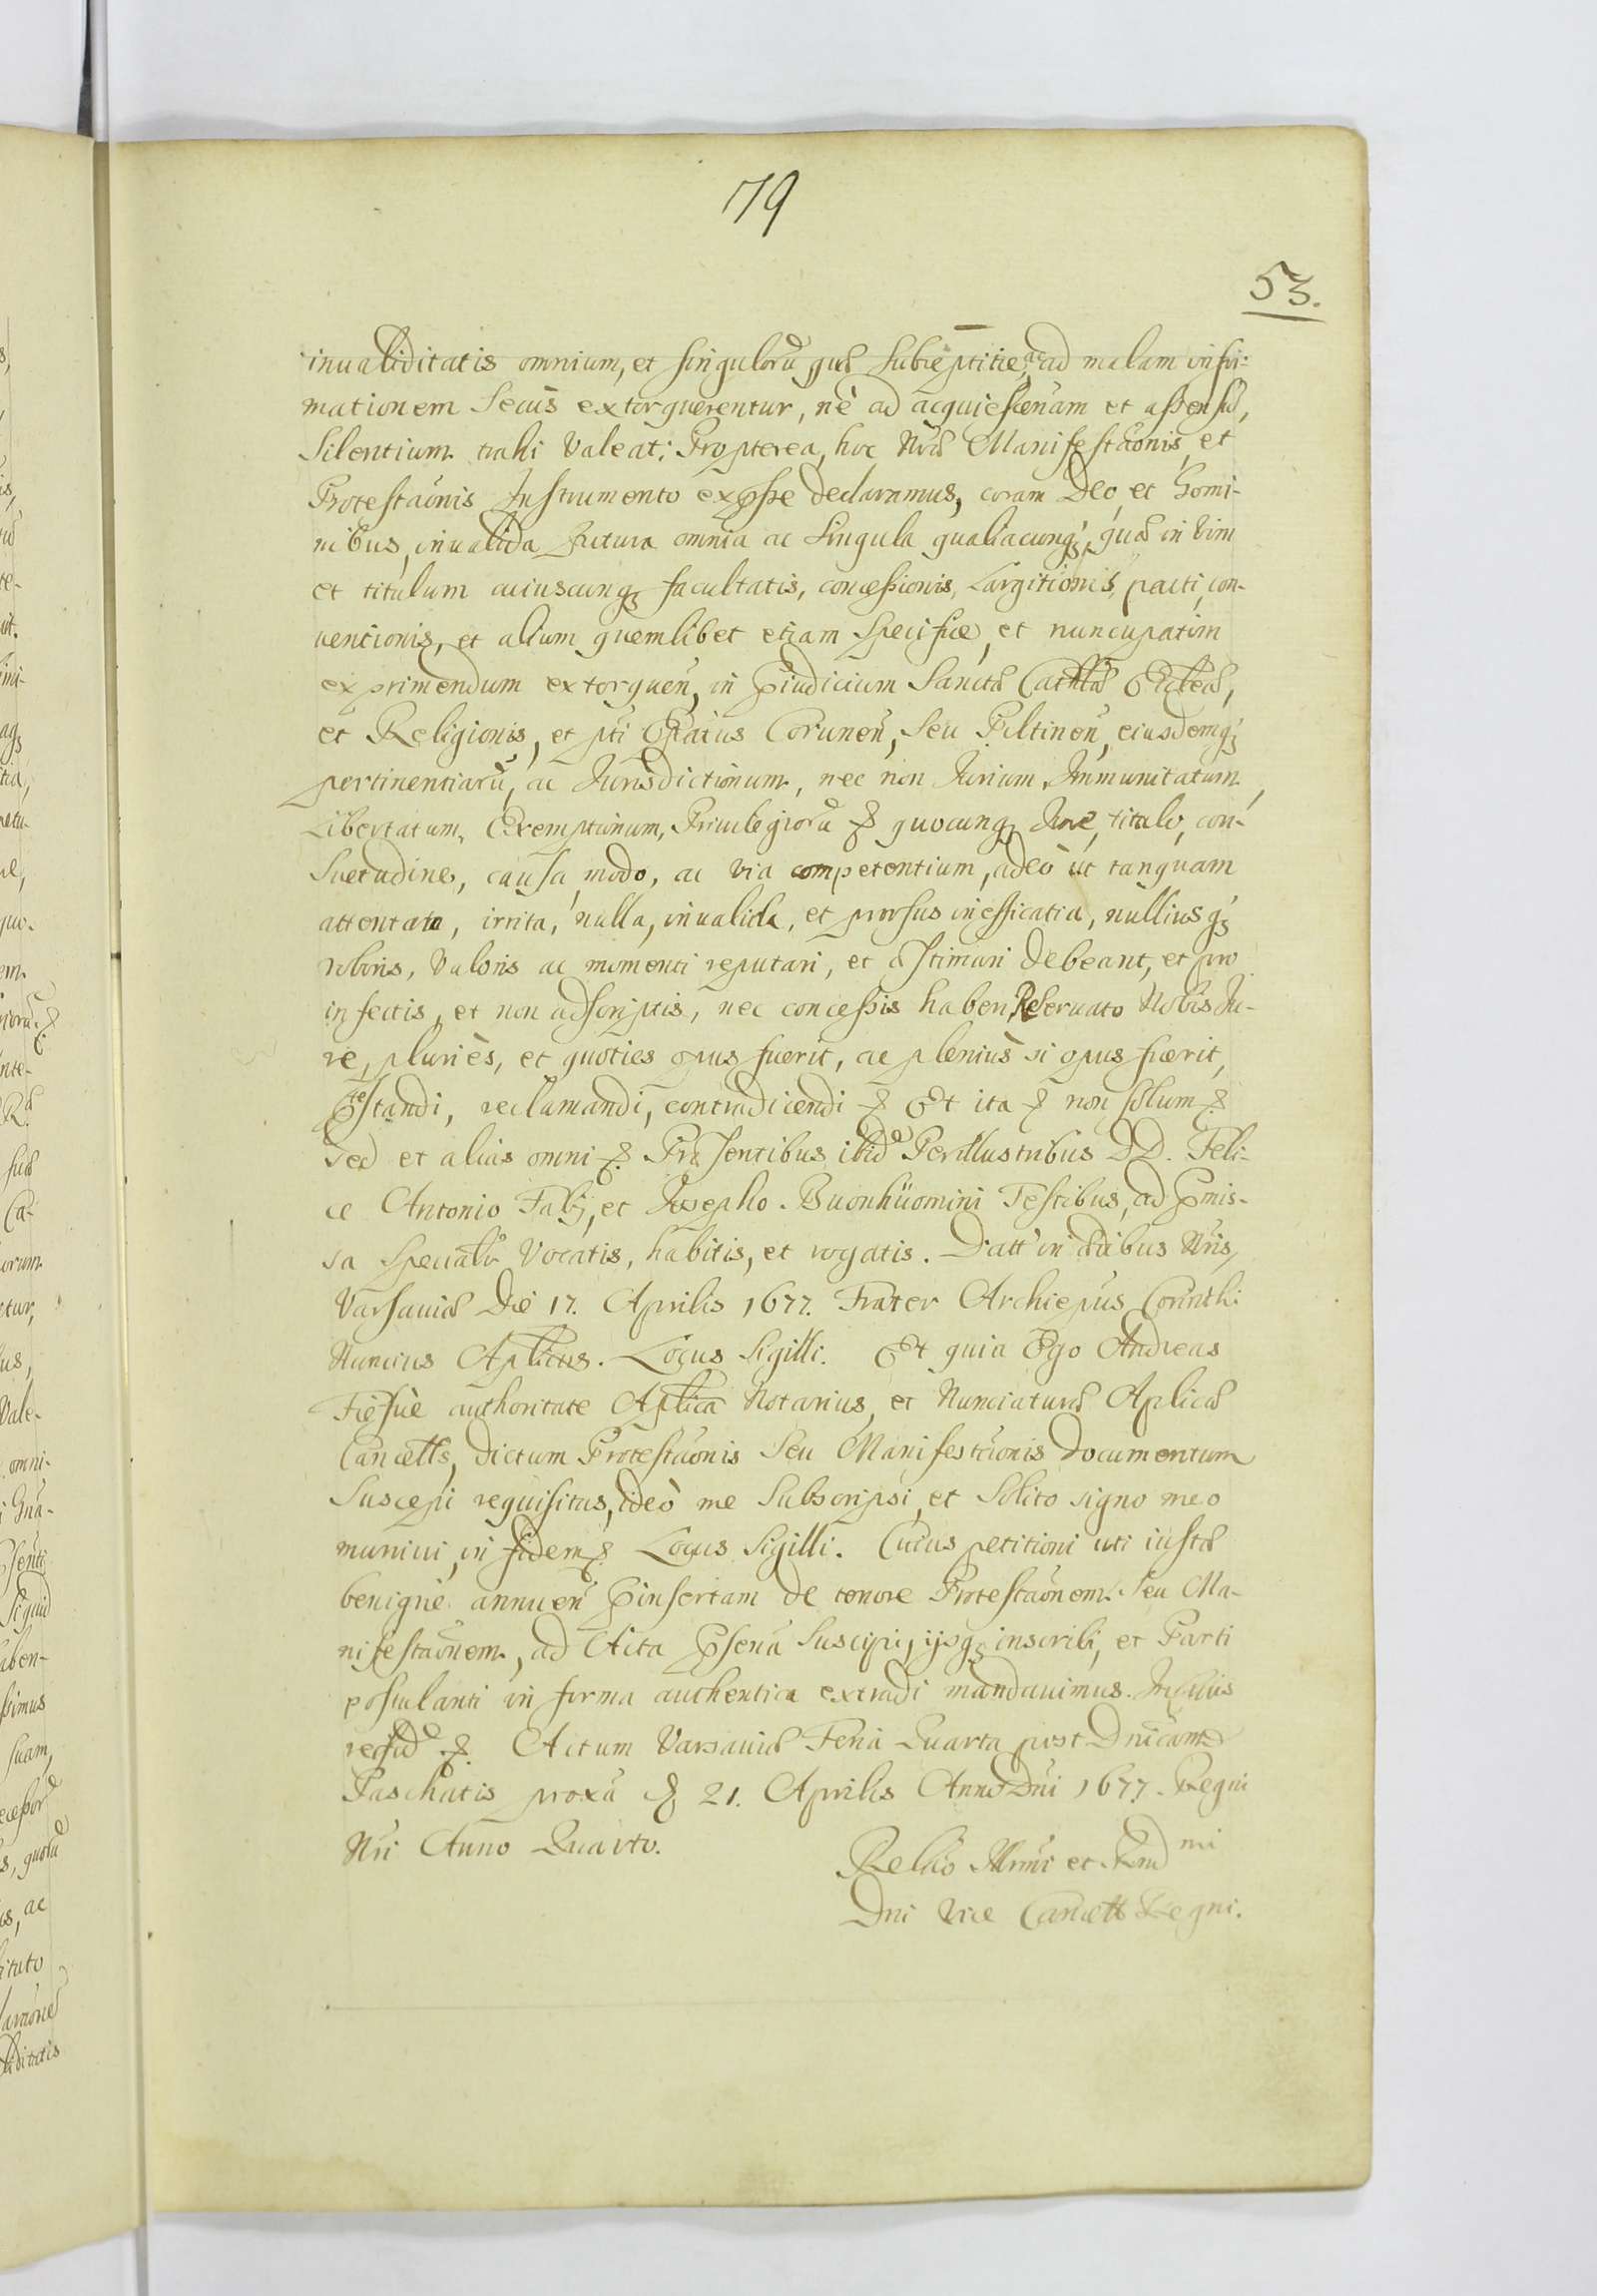 79
53.
inualiditatis omnium, et singulorũ quæ subreptitie, ac ad malam infor:
mationem secùs extorquerentur, nè ad acquiescenãm et assensũ,
silentium trahi valeat; Propterea, hoc Nræ Manifestãonis, et
Protestãonis Instrumento expsse declaramus, coram Deo, et homi-
nibus, inualida futura omnia ac singula qualiacunq;, quæ in vim
et titulum cuiuscunq; facultatis, concessionis, Largitionis, pacti, con-
uentionis, et alium quemlibet etiam specifice, et nuncupatim
exprimendum extorqueñ, in pjudicium Sanctæ Cathæ Ecclæ,
et Religionis, et pti Epatus Coruneñ, seu Piltineñ, eiusdemq;
pertinentiarũ, ac Jurisdictionum, nec non Jurium, Immunitatum,
Libertatum, Exemptionum, Priuilegiorũ & quocunq; Jure, titulo, con-
suetudine, causa, modo, ac via competentium, adeò ùt tanquam
attentata, irrita, nulla, inualida, et prorsus inefficatia, nulliusq;
roboris, valoris ac momenti reputari, et æstimari debeant, et pro
infectis, et non adscriptis, nec concessis haberi, Reseruato Nobis Ju-
re, pluriès, et quoties opus fuerit, ac pleniùs si opus fuerit,
ptestandi, reclamandi, contradicendi & Et ita & non solum &
sed et alias omni & Præsentibus ibid Perillustribus DD. Feli-
ce Antonio Fabij, et Josepho Buonhüomini Testibus, ad pmis-
sa specialr vocatis, habitis, et rogatis. Datt in ædibus Nris,
Varsauiæ Die 17. Aprilis 1677. Frater Archiepus Corinthi
Nuncius Aplicus. Locus Sigilli. Et quia Ego Andreas
authoritate Aplica Notarius, et Nunciaturæ Aplicæ
Cancells, dictum Protestãonis seu Manifestãonis documentum
suscepi requisitus, ideò me subscripsi, et solito signo meo
muniui, in fidem & Locus Sigilli. Cuius petitioni uti iustæ
benigne annueñ pinsertam de tenore Protestãonem seu Ma-
nifestãonem, ad Acta psenã suscipi, ijsq; inscribi, et Parti
postulanti in forma authentica extradi mandauimus. In cuius
rei fid & Actum Varsauiæ Feria Quarta post Dnicam
Paschatis proxã & 21. Aprilis Anno Dni 1677. Regni
Nri Anno Quarto.
Relio Illrmi et Rnd mi
Dni Vice Cancell Regni.